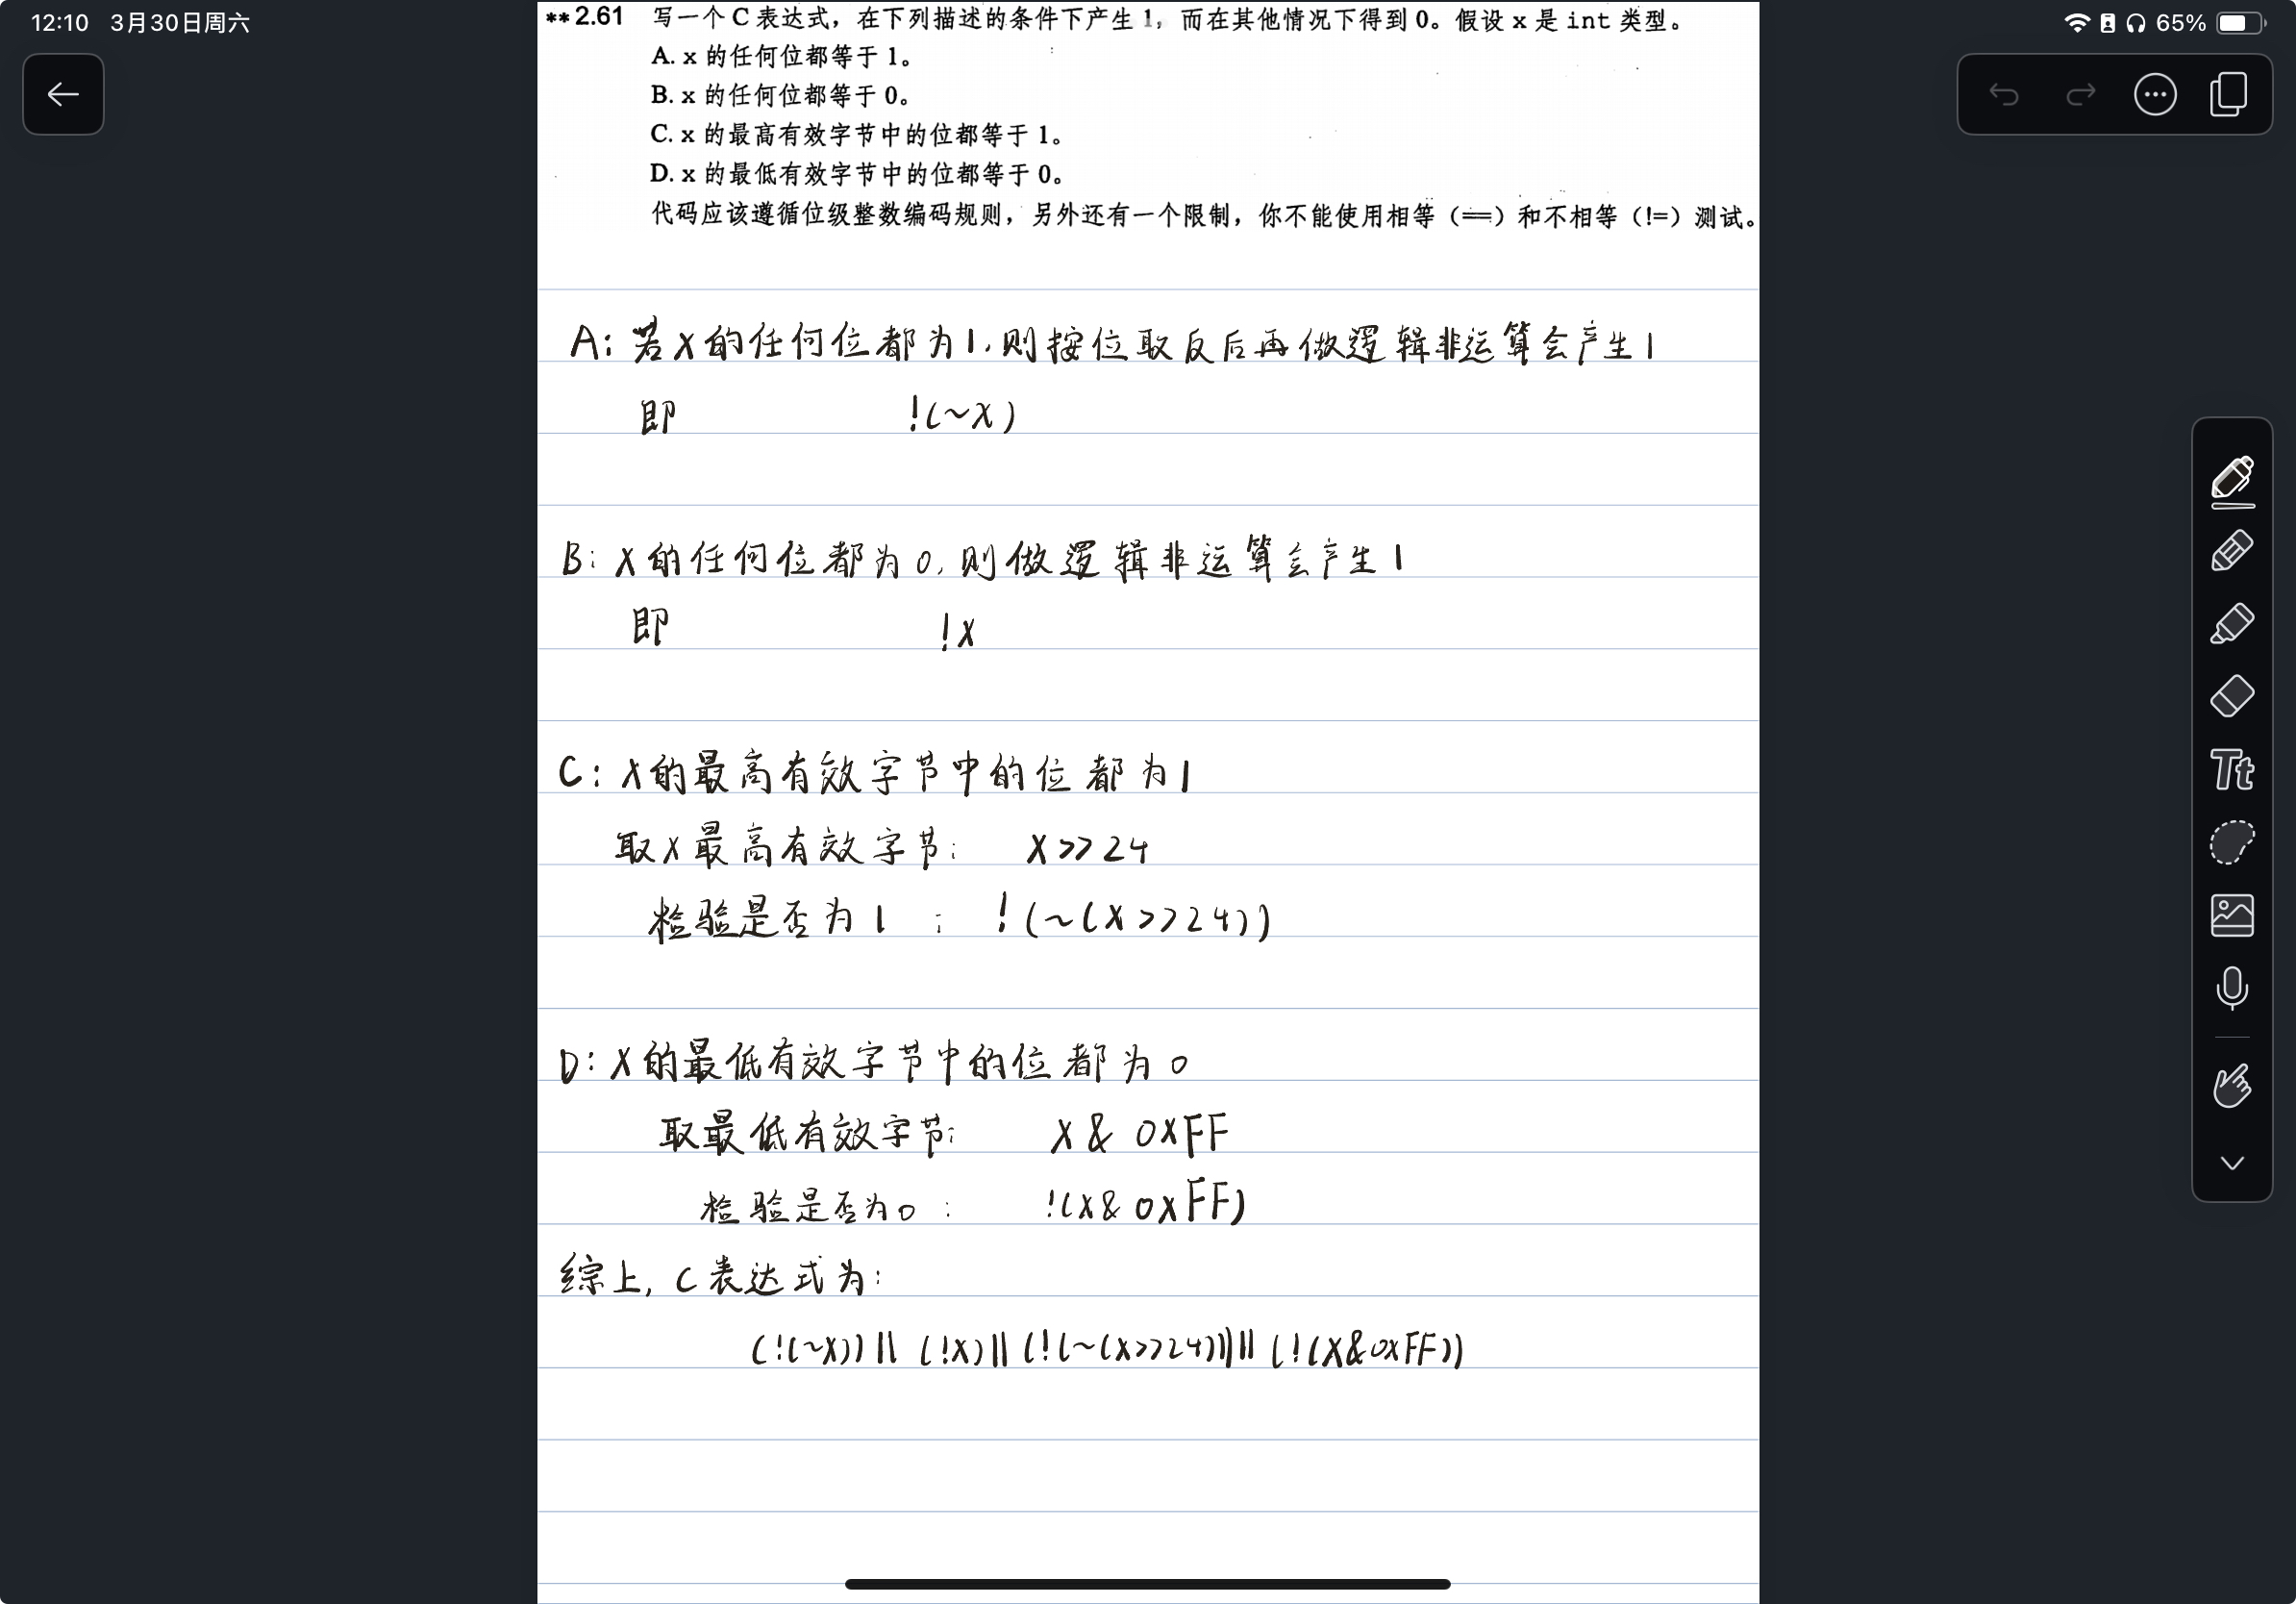 12:10 3月30日周六
65%
** 2.61 写一个 C 表达式，在下列描述的条件下产生 1，而在其他情况下得到 0。假设 x 是 int 类型。
A. x 的任何位都等于 1。
B. x 的任何位都等于 0。
C. x 的最高有效字节中的位都等于 1。
D. x 的最低有效字节中的位都等于 0。
代码应该遵循位级整数编码规则，另外还有一个限制，你不能使用相等（==）和不相等（!=）测试。
A: 若X的任何位都为1,则按位取反后再做逻辑非运算会产生1
即 !(~X)
B: X的任何位都为0,则做逻辑非运算会产生1
即 !X
C: X的最高有效字节中的位都为1
取X最高有效字节: X>>24
检验是否为1 : !(~(X>>24))
D: X的最低有效字节中的位都为0
取最低有效字节: X& 0XFF
检验是否为0 : !(X& 0XFF)
综上, C表达式为:
(!(~X)) || (!X) || (!(~(X>>24))) || (!(X&0XFF))
Tt